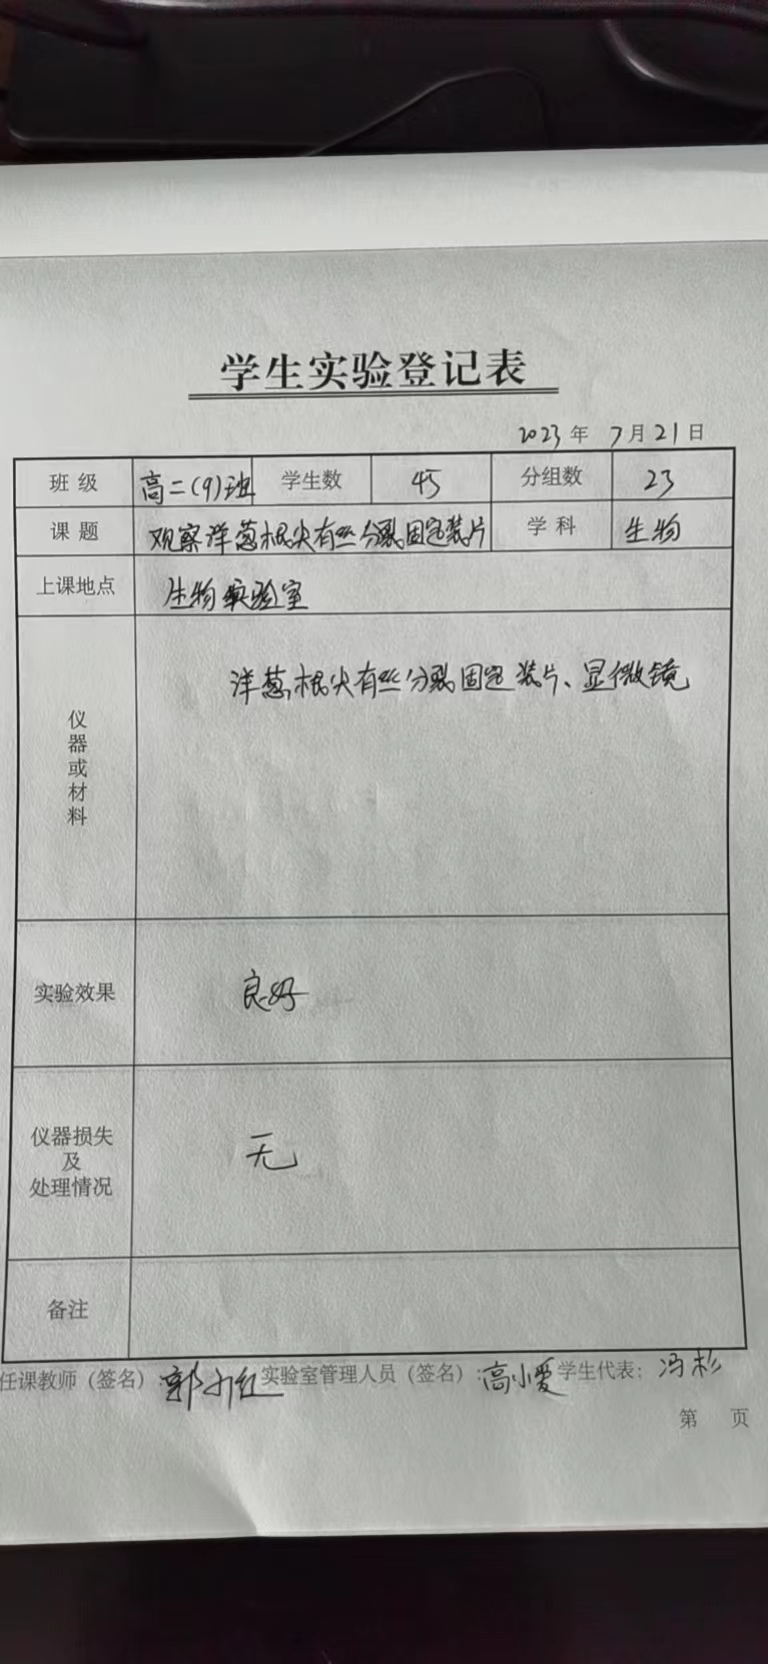 学生实验登记表
2023年 7月21日
班 级 高二(9)班 学生数 45 分组数 23
课 题 观察洋葱根尖有丝分裂固定装片 学 科 生物
上课地点 生物实验室
仪器或材料 洋葱根尖有丝分裂固定装片、显微镜
实验效果 良好
仪器损失
及
处理情况
无
备注
任课教师（签名） 郭 红 实验室管理人员（签名）：高小爱 学生代表：冯杉
第 页